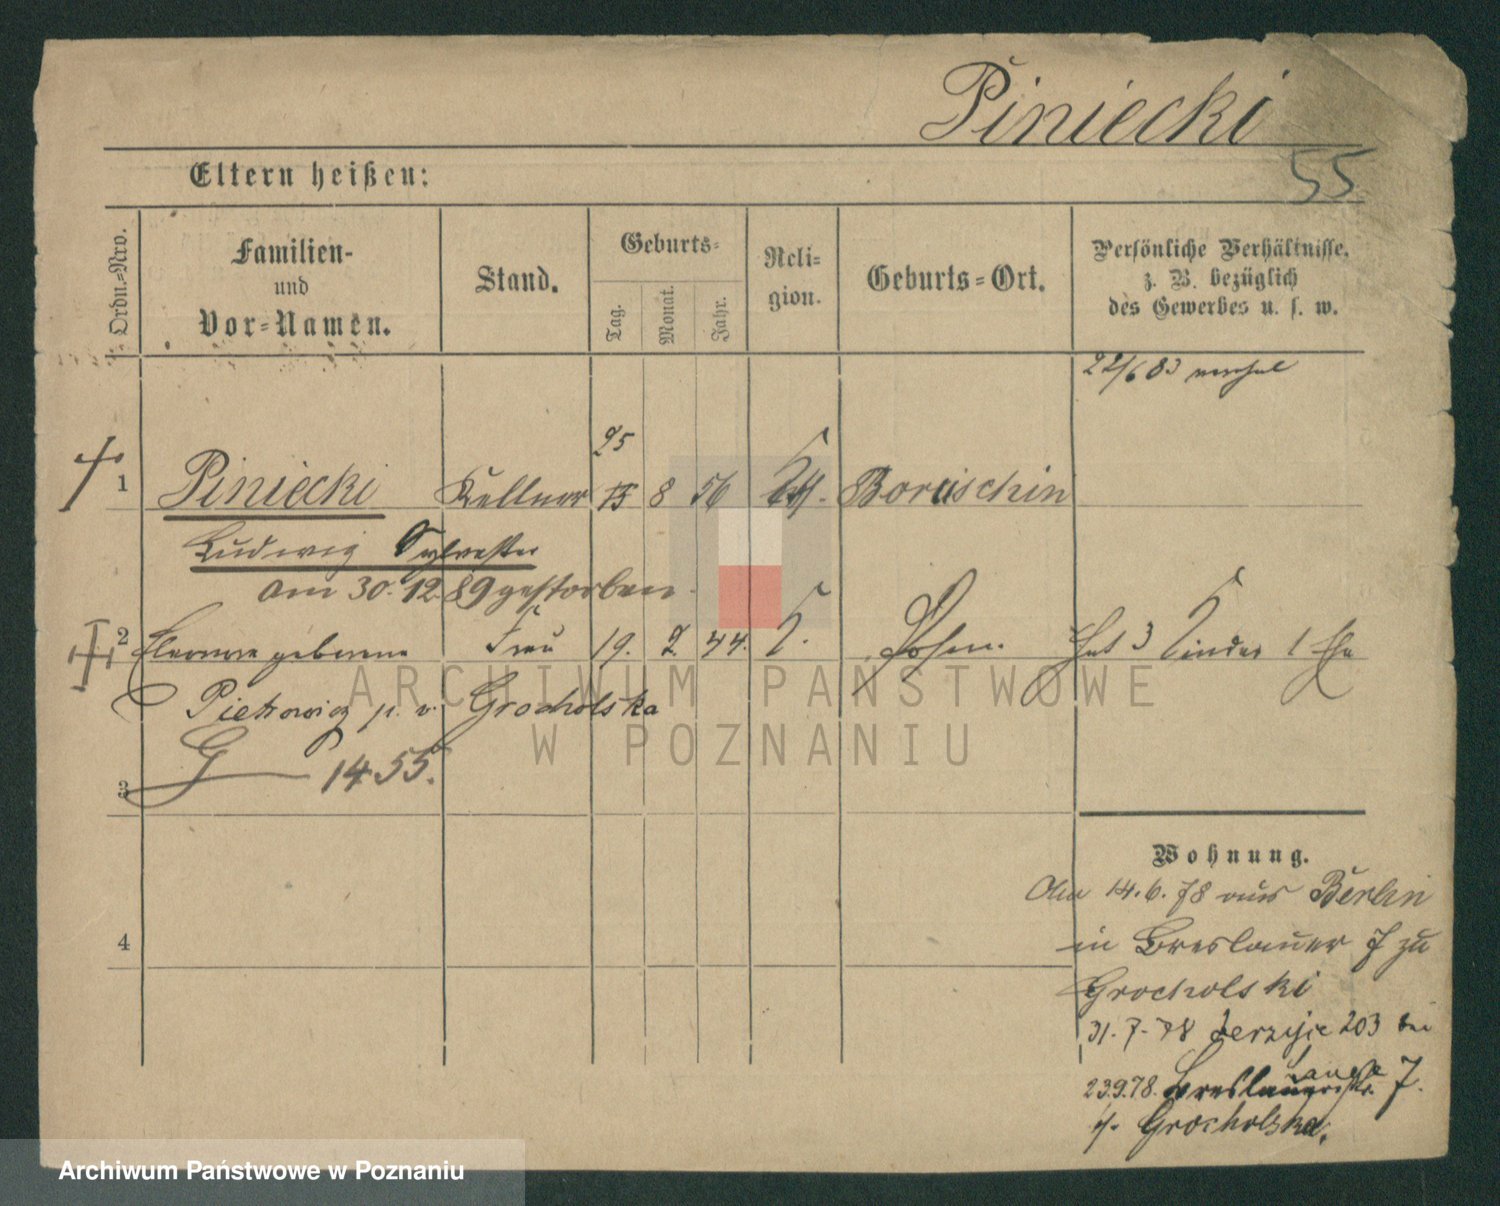 Piniecki
55
Eltern heißen:
Ordn.-Nro.
Familien-
und
Vor-Namen.
Stand.
Geburts-
Tag.
Monat.
Jahr.
Reli-
gion.
Geburts-Ort.
Persönliche Verhältnisse.
z. B. bezüglich
des Gewerbes u. s. w.
22/6 83
25
1 Piniecki Kellner 15 8 56 Boruschin
Ludwig Sylvester
am 30. 12. 89 gestorben
2 Eleonore geborene Frau 19. 2. 44. k. Posen. Hat 3 Kinder 1 Ehe
Pietrowicz p. v. Grocholska
G 1455.
3
4
Wohnung.
Am 14.6.78 aus Berlin
in Breslauer 7 zu
Grocholski
31.7.78 Jerzyce 203 bei
Lange
23.9.78. Breslauerstr. 7.
b. Grocholska.
ARCHIWUM PAŃSTWOWE
W POZNANIU
Archiwum Państwowe w Poznaniu